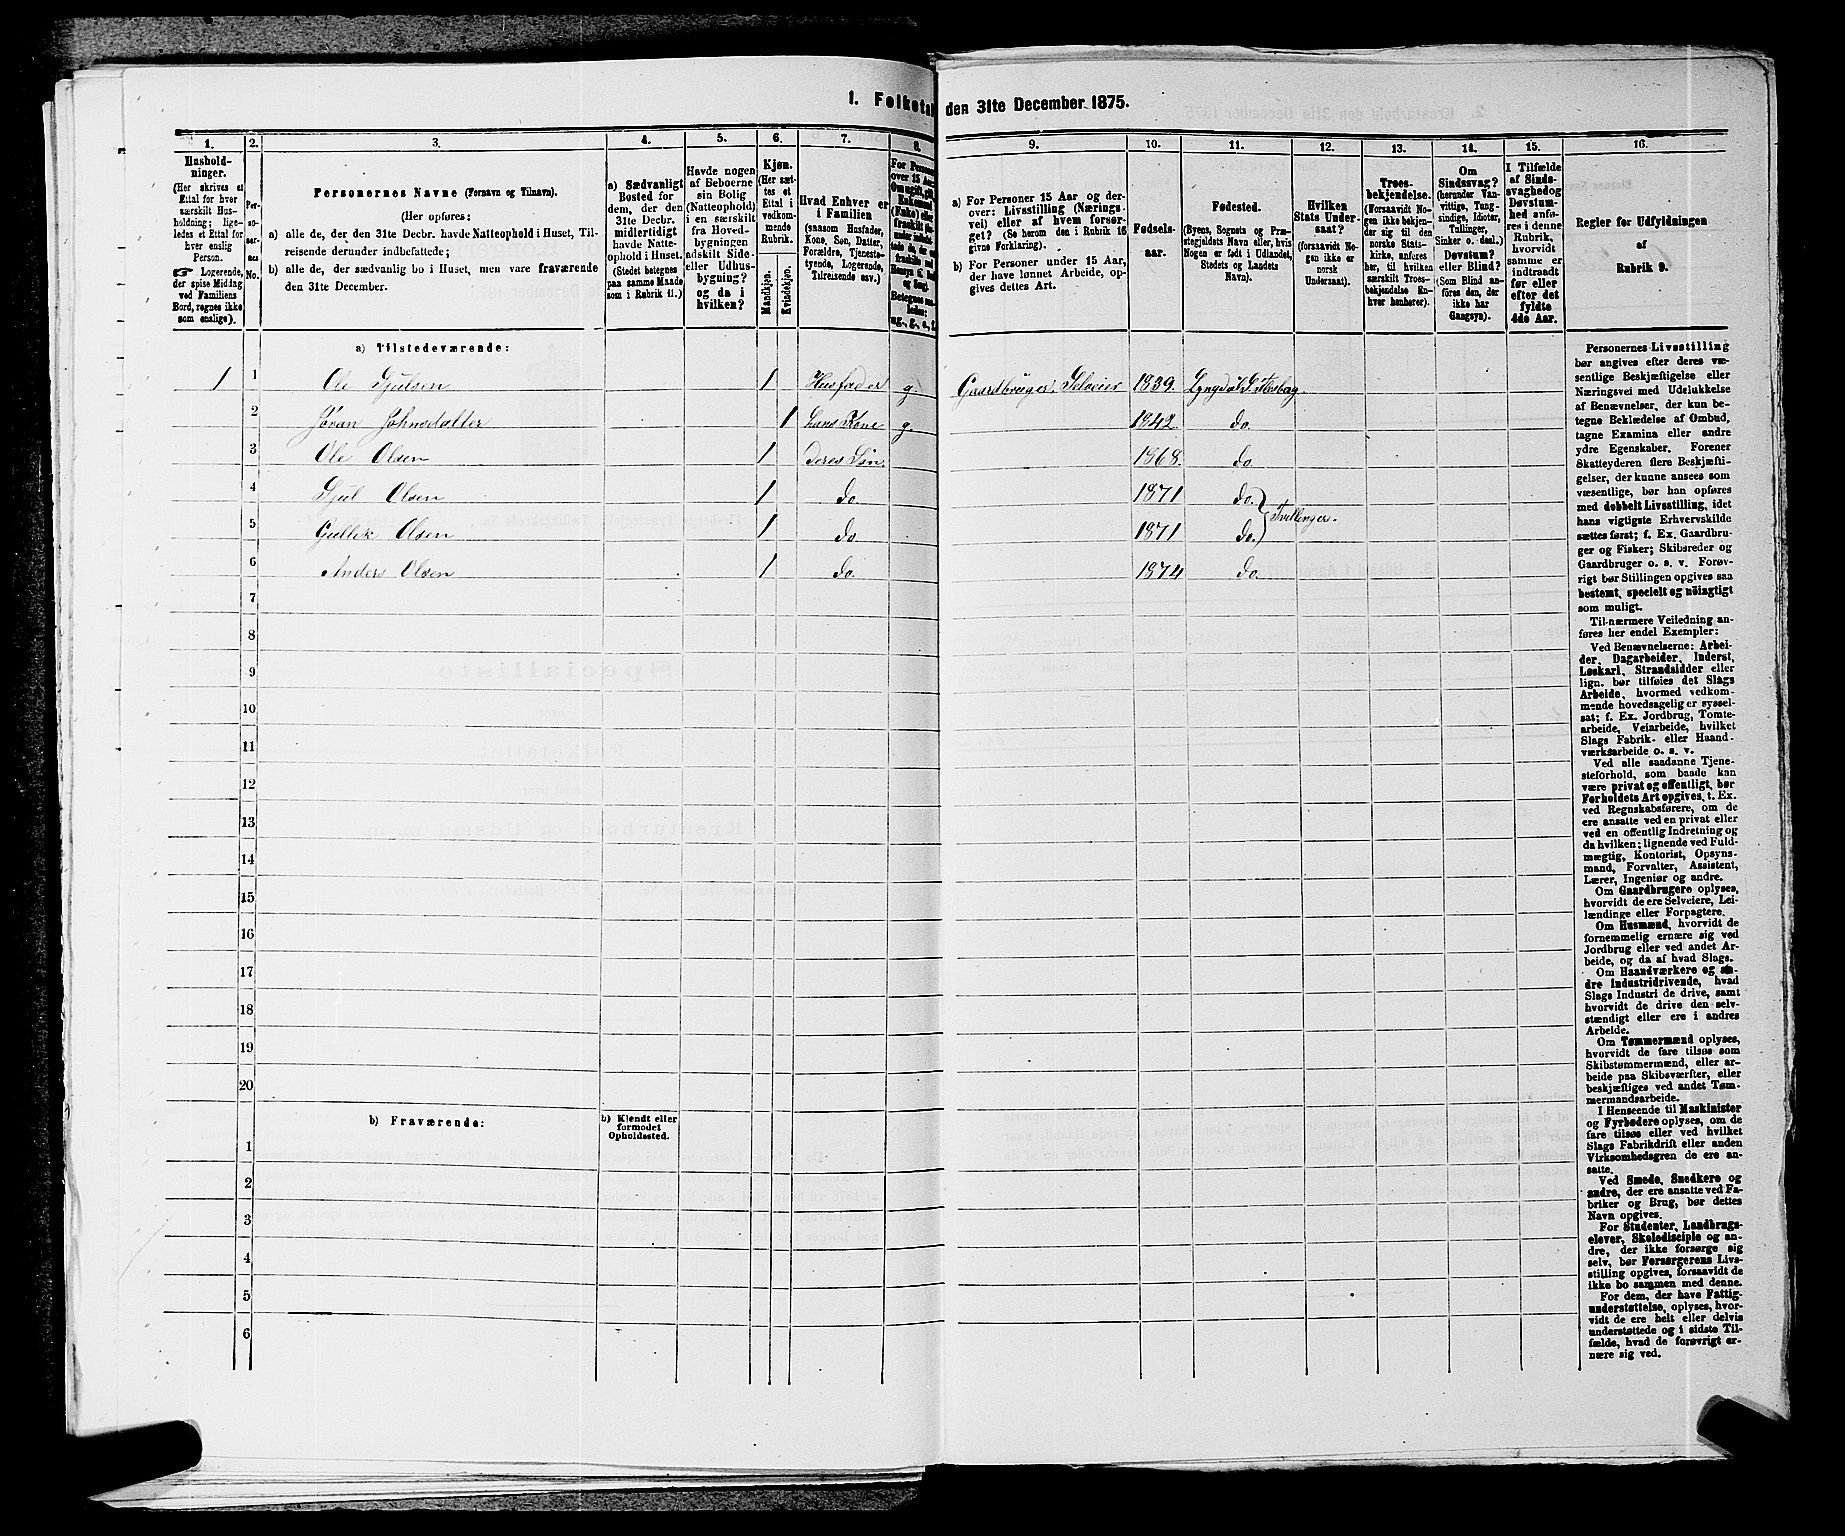 1. Folketal
den 31te December 1875.
1.
2.
3.
4.
5.
6.
7.
8.
9.
10.
11.
12.
13.
14.
15.
16.
Hushold-
ninger.
(Her skrives et
Ettal for hver
særskilt Hus-
holdning; lige-
ledes et Ettal for
hver enslig
Person.
Logerende,
der spise Middag
ved Familiens
Bord, regnes ikke
som enslige).
Per-
so-
ner-
nes
No.
Personernes Navne (Fornavn og Tilnavn).
(Her opføres:
a) alle de, der den 31te Decbr. havde Natteophold i Huset, Til-
reisende derunder indbefattede;
b) alle de, der sædvanlig bo i Huset, men vare fraværende
den 31te December.
a) Sædvanligt
Bosted for
dem, der den
31te Decbr.
midlertidigt
havde Natte-
ophold i Huset.
(Stedet betegnes
paa samme Maade
som i Rubrik 11.)
Havde nogen
af Beboerne
sin Bolig
(Natteophold)
i en særskilt
fra Hoved-
bygningen
adskilt Side-
eller Udhus-
bygning?
og da i
hvilken?
Kjøn.
(Her sæt-
tes et
Ettal i
vedkom-
mende
Rubrik.
Mandkjøn.
Kvindekjøn.
Hvad Enhver er
i Familien
(saasom Husfader,
Kone, Søn, Datter,
Forældre, Tjeneste-
tyende, Logerende,
Tilreisende osv.)
a) For Personer 15 Aar og der-
over: Livsstilling (Nærings-
vei) eller af hvem forsør-
get? (Se herom den i Rubrik 16
givne Forklaring).
b) For Personer under 15 Aar,
der have lønnet Arbeide, op-
gives dettes Art.
Fødsels-
aar.
Fødested.
(Byens, Sognets og Præ-
stegjeldets Navn eller, hvis
Nogen er født i Udlandet,
Stedets og Landets
Navn).
Hvilken
Stats Under-
saat?
(forsaavidt No-
gen ikke er
norsk
Undersaat).
Troes-
bekjendelse.
(Forsaavidt No-
gen ikke bekjen-
der sig til den
norske Stats-
kirke, anføres
her, til hvilken
særskilt Troes-
bekjendelse En-
hver henhører).
Om
Sindssvag?
(herunder Van-
vittige, Tung-
sindige, Idioter,
Tullinger,
Sinker o. desl.)
Døvstum?
eller Blind?
(Som Blind an-
føres den, der
ikke har
Gangsyn).
I Tilfælde
af Sinds-
svaghed og
Døvstum-
hed anfø-
res i denne
Rubrik,
hvorvidt
samme er
indtraadt
før eller
efter det
fyldte
4de Aar.
Regler for Udfyldningen
af
Rubrik 9.
a) Tilstedeværende:
1 1 Ole Gjulsen 1 Husfader g. Gaardbruger, Selveier 1839. Lyngdal
2 Jøran Johnsdatter 1 hans Kone g. 1842. do.
3 Ole Olsen 1 deres Søn. 1868. do.
4 Gjul Olsen 1 do. 1871 do.
Tvillinger.
5 Gullik Olsen 1 do 1871 do.
6 Anders Olsen 1 do. 1874 do.
7
8
9
10
11
12
13
14
15
16
17
18
19
20
b) Fraværende:
b) Kjendt eller
formodet
Opholdssted.
1
2
3
4
5
6
Personernes Livsstilling
bør angives efter deres væ-
sentlige Beskjæftigelse eller
Næringsvei med Udelukkelse
af Benævnelser, der kun be-
tegne Beklædelse af Ombud,
tagne Examina eller andre
ydre Egenskaber. Forener
Skatteyderen flere Beskjæfti-
gelser, der kunne ansees som
væsentlige, bør han opføres
med dobbelt Livsstilling, idet
hans vigtigste Erhvervskilde
sættes først; f. Ex. Gaardbru-
ger og Fisker; Skibsreder og
Gaardbruger o. s. v. Forøv-
rigt bør Stillingen opgives saa
bestemt, specielt og nöiagtigt
som muligt.
Til nærmere Veiledning an-
føres her endel Exempler:
Ved Benævnelserne: Arbei-
der, Dagarbeider, Inderst,
Løskarl, Strandsidder eller
lign. bør tilføies det Slags
Arbeide, hvormed vedkom-
mende hovedsagelig er syssel-
sat; f. Ex. Jordbrug, Tomte-
arbeide, Veiarbeide, hvilket
Slags Fabrik- eller Haand-
værksarbeide o. s. v.
Ved alle saadanne Tjene-
steforhold, som baade kan
være privat og offentligt, bør
Forholdets Art opgives, t. Ex.
ved Regnskabsførere, om de
ere ansatte ved en privat eller
ved en offentlig Indretning og
da hvilken; lignende ved Fuld-
mægtig, Kontorist, Opsyns-
mand, Forvalter, Assistent,
Lærer, Ingeniør og andre.
Om Gaardbrugere oplyses,
hvorvidt de ere Selveiere, Lei-
lændinge eller Forpagtere.
Om Husmænd, hvorvidt de
fornemmelig ernære sig ved
Jordbrug eller ved andet Ar-
beide, og da af hvad Slags.
Om Haandværkere og an-
dre Industridrivende, hvad
Slags Industri de drive, samt
hvorvidt de drive den selv-
stændigt eller ere i andres
Arbeide.
Om Tømmermænd oplyses,
hvorvidt de fare tilsøs som
Skibstømmermænd, eller ar-
beide paa Skibsværfter, eller
beskjæftiges ved andet Tøm-
mermandsarbeide.
I Henseende til Maskinister
og Fyrbødere oplyses, om de
fare tilsøs eller ved hvilket
Slags Fabrikdrift eller anden
Virksomhedsgren de ere an-
satte.
Ved Smede, Snedkere og
andre, der ere ansatte ved Fa-
briker og Brug, bør dettes
Navn opgives.
For Studenter, Landbrugs-
elever, Skoledisciple og an-
dre, der ikke forsørge sig
selv, bør Forsørgerens Livs-
stilling opgives, forsaavidt de
ikke bo sammen med denne.
For dem, der have Fattig-
understøttelse, oplyses, hvor-
vidt de ere helt eller delvis
understøttede og i sidste Til-
fælde, hvad de forøvrigt er-
nære sig ved.